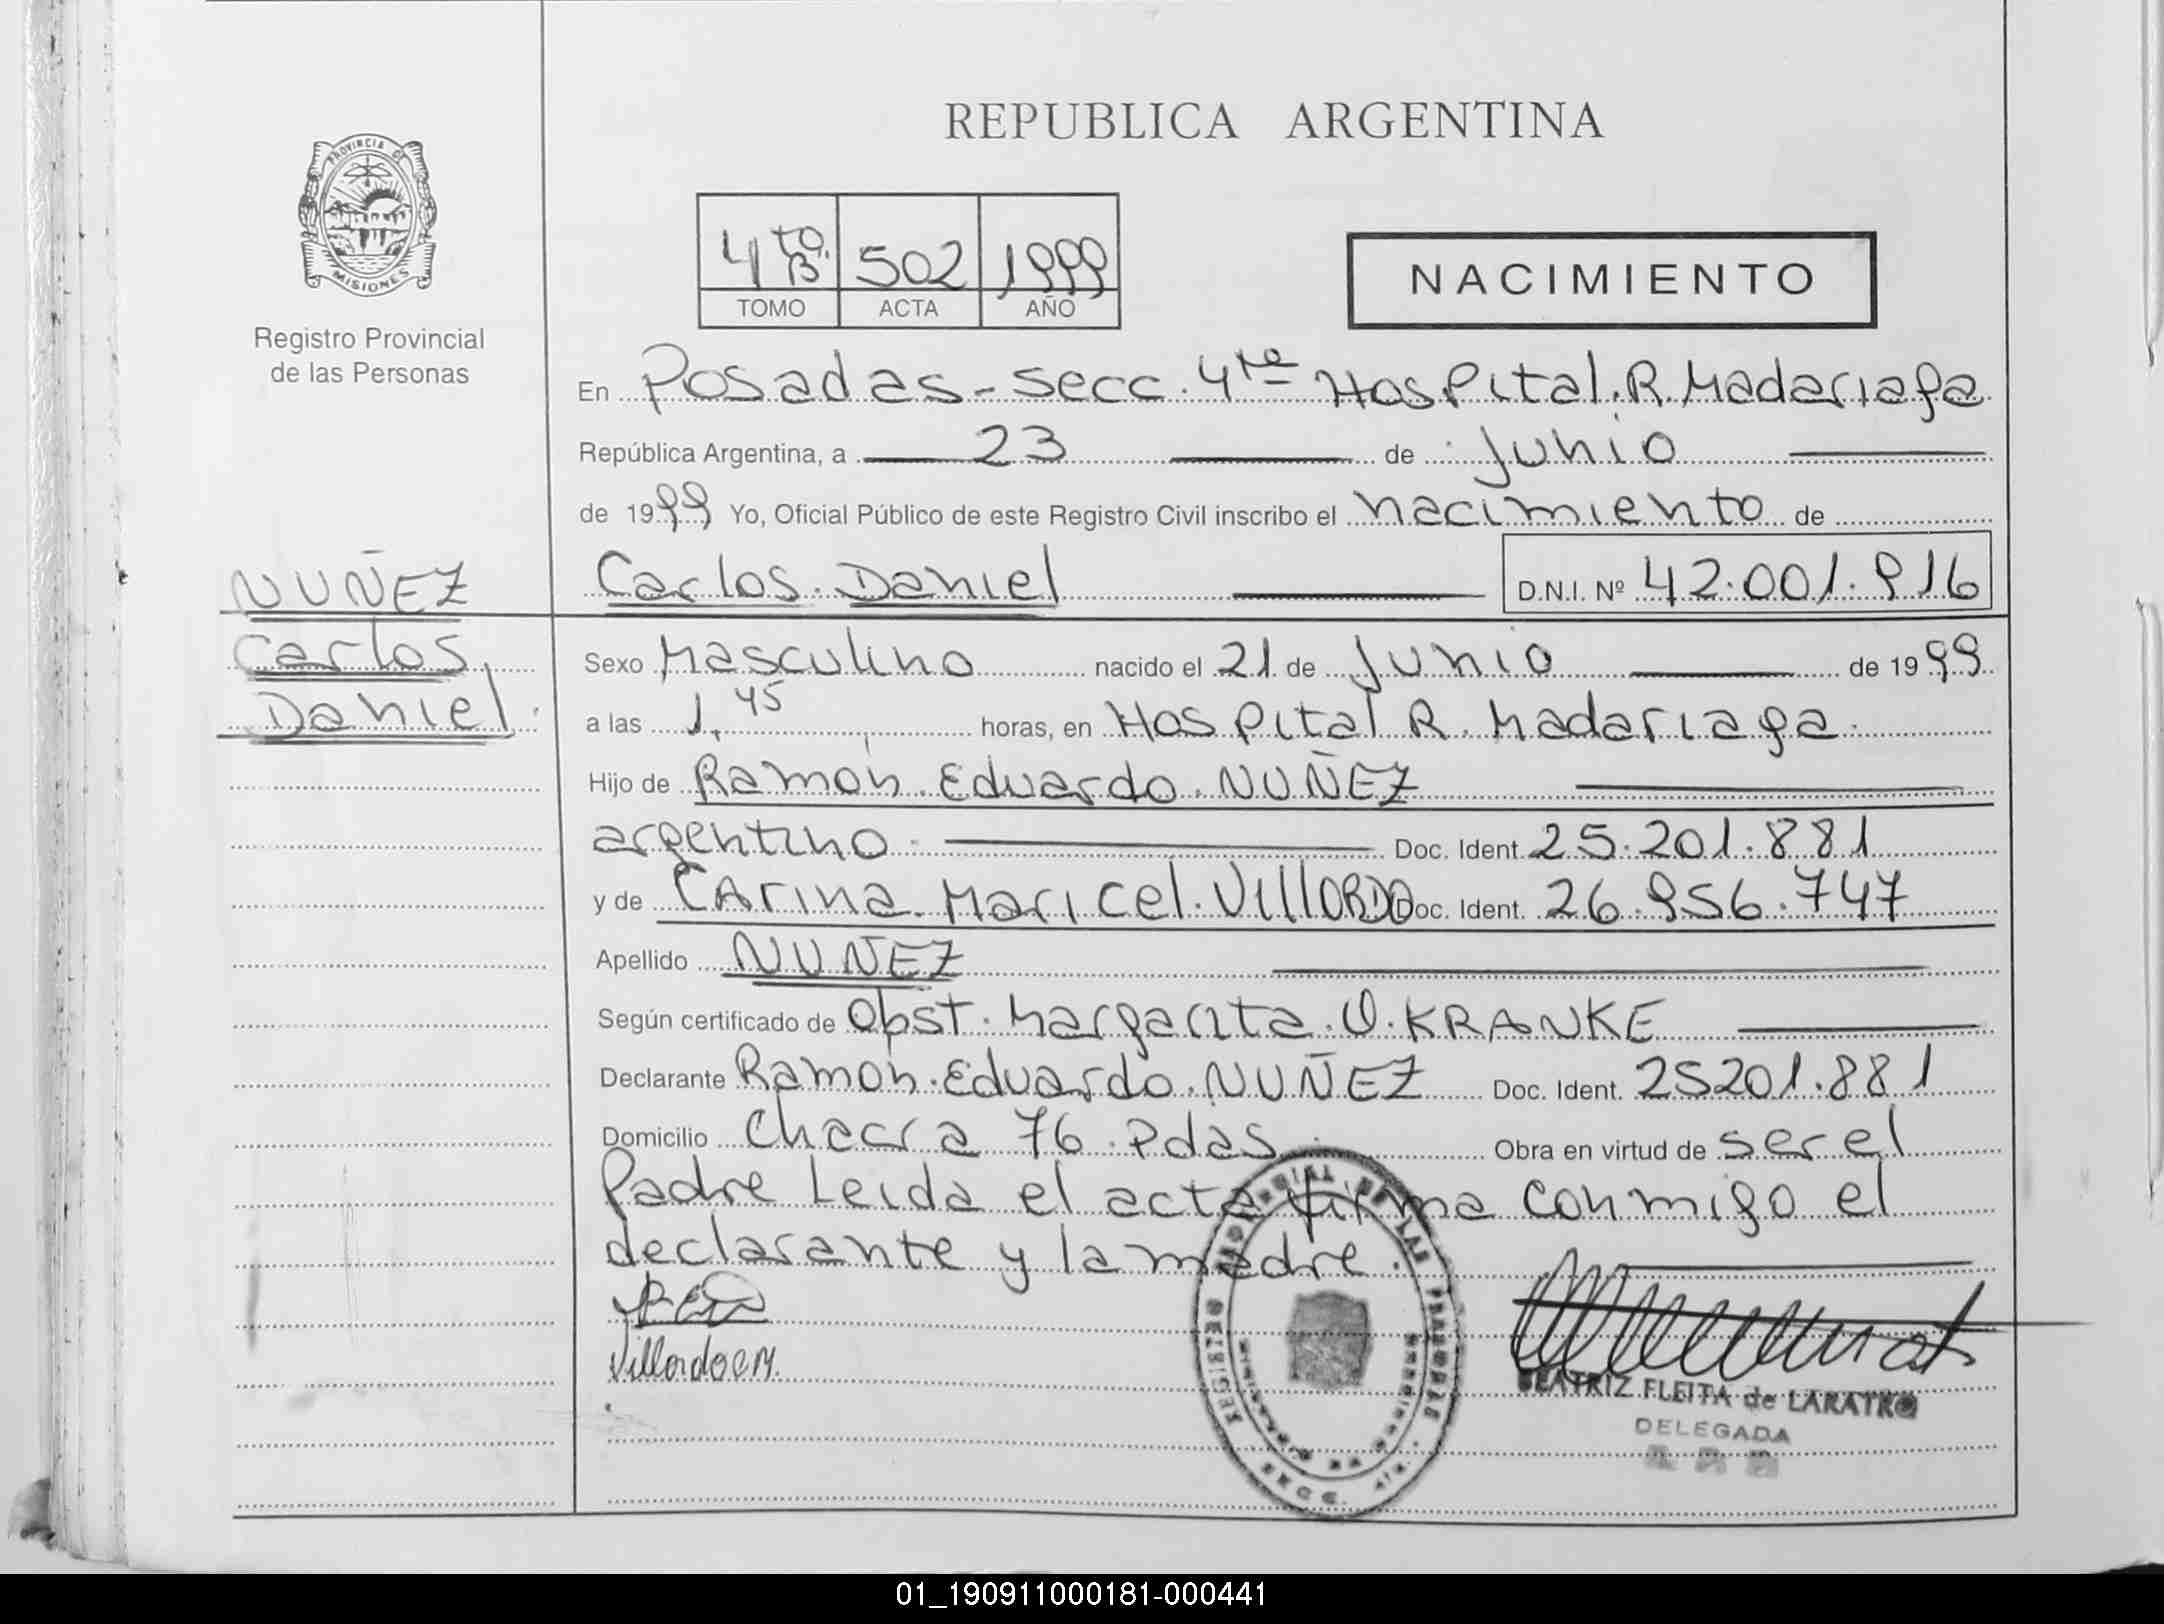 REPUBLICA ARGENTINA
PROVINCIA DE
MISIONES
Registro Provincial
de las Personas
4to. B. 502 1999
TOMO ACTA AÑO
NACIMIENTO
En Posadas - Secc. 4ta Hospital. R. Madariaga
República Argentina, a 23 de Junio
de 1999 Yo, Oficial Público de este Registro Civil inscribo el nacimiento de
Carlos. Daniel D.N.I. Nº 42.001.916
NUÑEZ
Carlos
Daniel.
Sexo Masculino nacido el 21 de Junio de 1999
a las 1,45 horas, en Hospital R. Madariaga.
Hijo de Ramón. Eduardo. NUÑEZ
argentino Doc. Ident. 25.201.881
y de CArina. Maricel. VillORDO Doc. Ident. 26.956.747
Apellido NUÑEZ
Según certificado de Obst. Margarita. O. KRANKE
Declarante Ramón. Eduardo. NUÑEZ Doc. Ident. 25201.881
Domicilio Chacra 76. Pdas. Obra en virtud de ser el
Padre Leida el acta firma conmigo el
declarante y la madre.
Villordo C M.
BEATRIZ FLEITA de LARATRO
DELEGADA
01_190911000181-000441